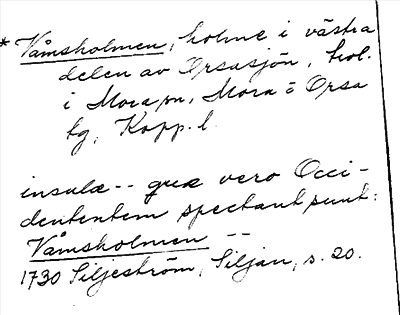 * Våmsholmen, holme i västra
delen av Orsasjön, bol.
i Mora sn, Mora o Orsa
tg, Kopp. l.
insulæ -- quæ vero Occi-
dentem spectant sunt:
Våmsholmen --
1730 Siljeström, Siljan, s. 20.